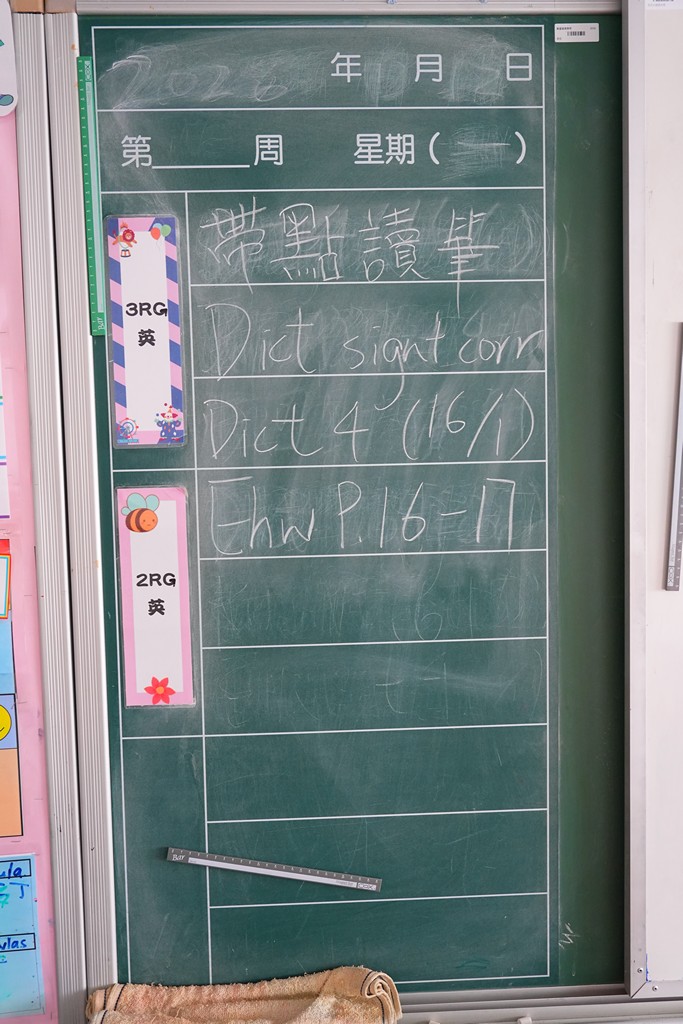 2026 年 月 12 日
第______周 星期 ( 一 )
帶點讀筆
3RG
英
Dict signt corr
Dict 4 (16/1)
Ehw P.16-17
2RG
英